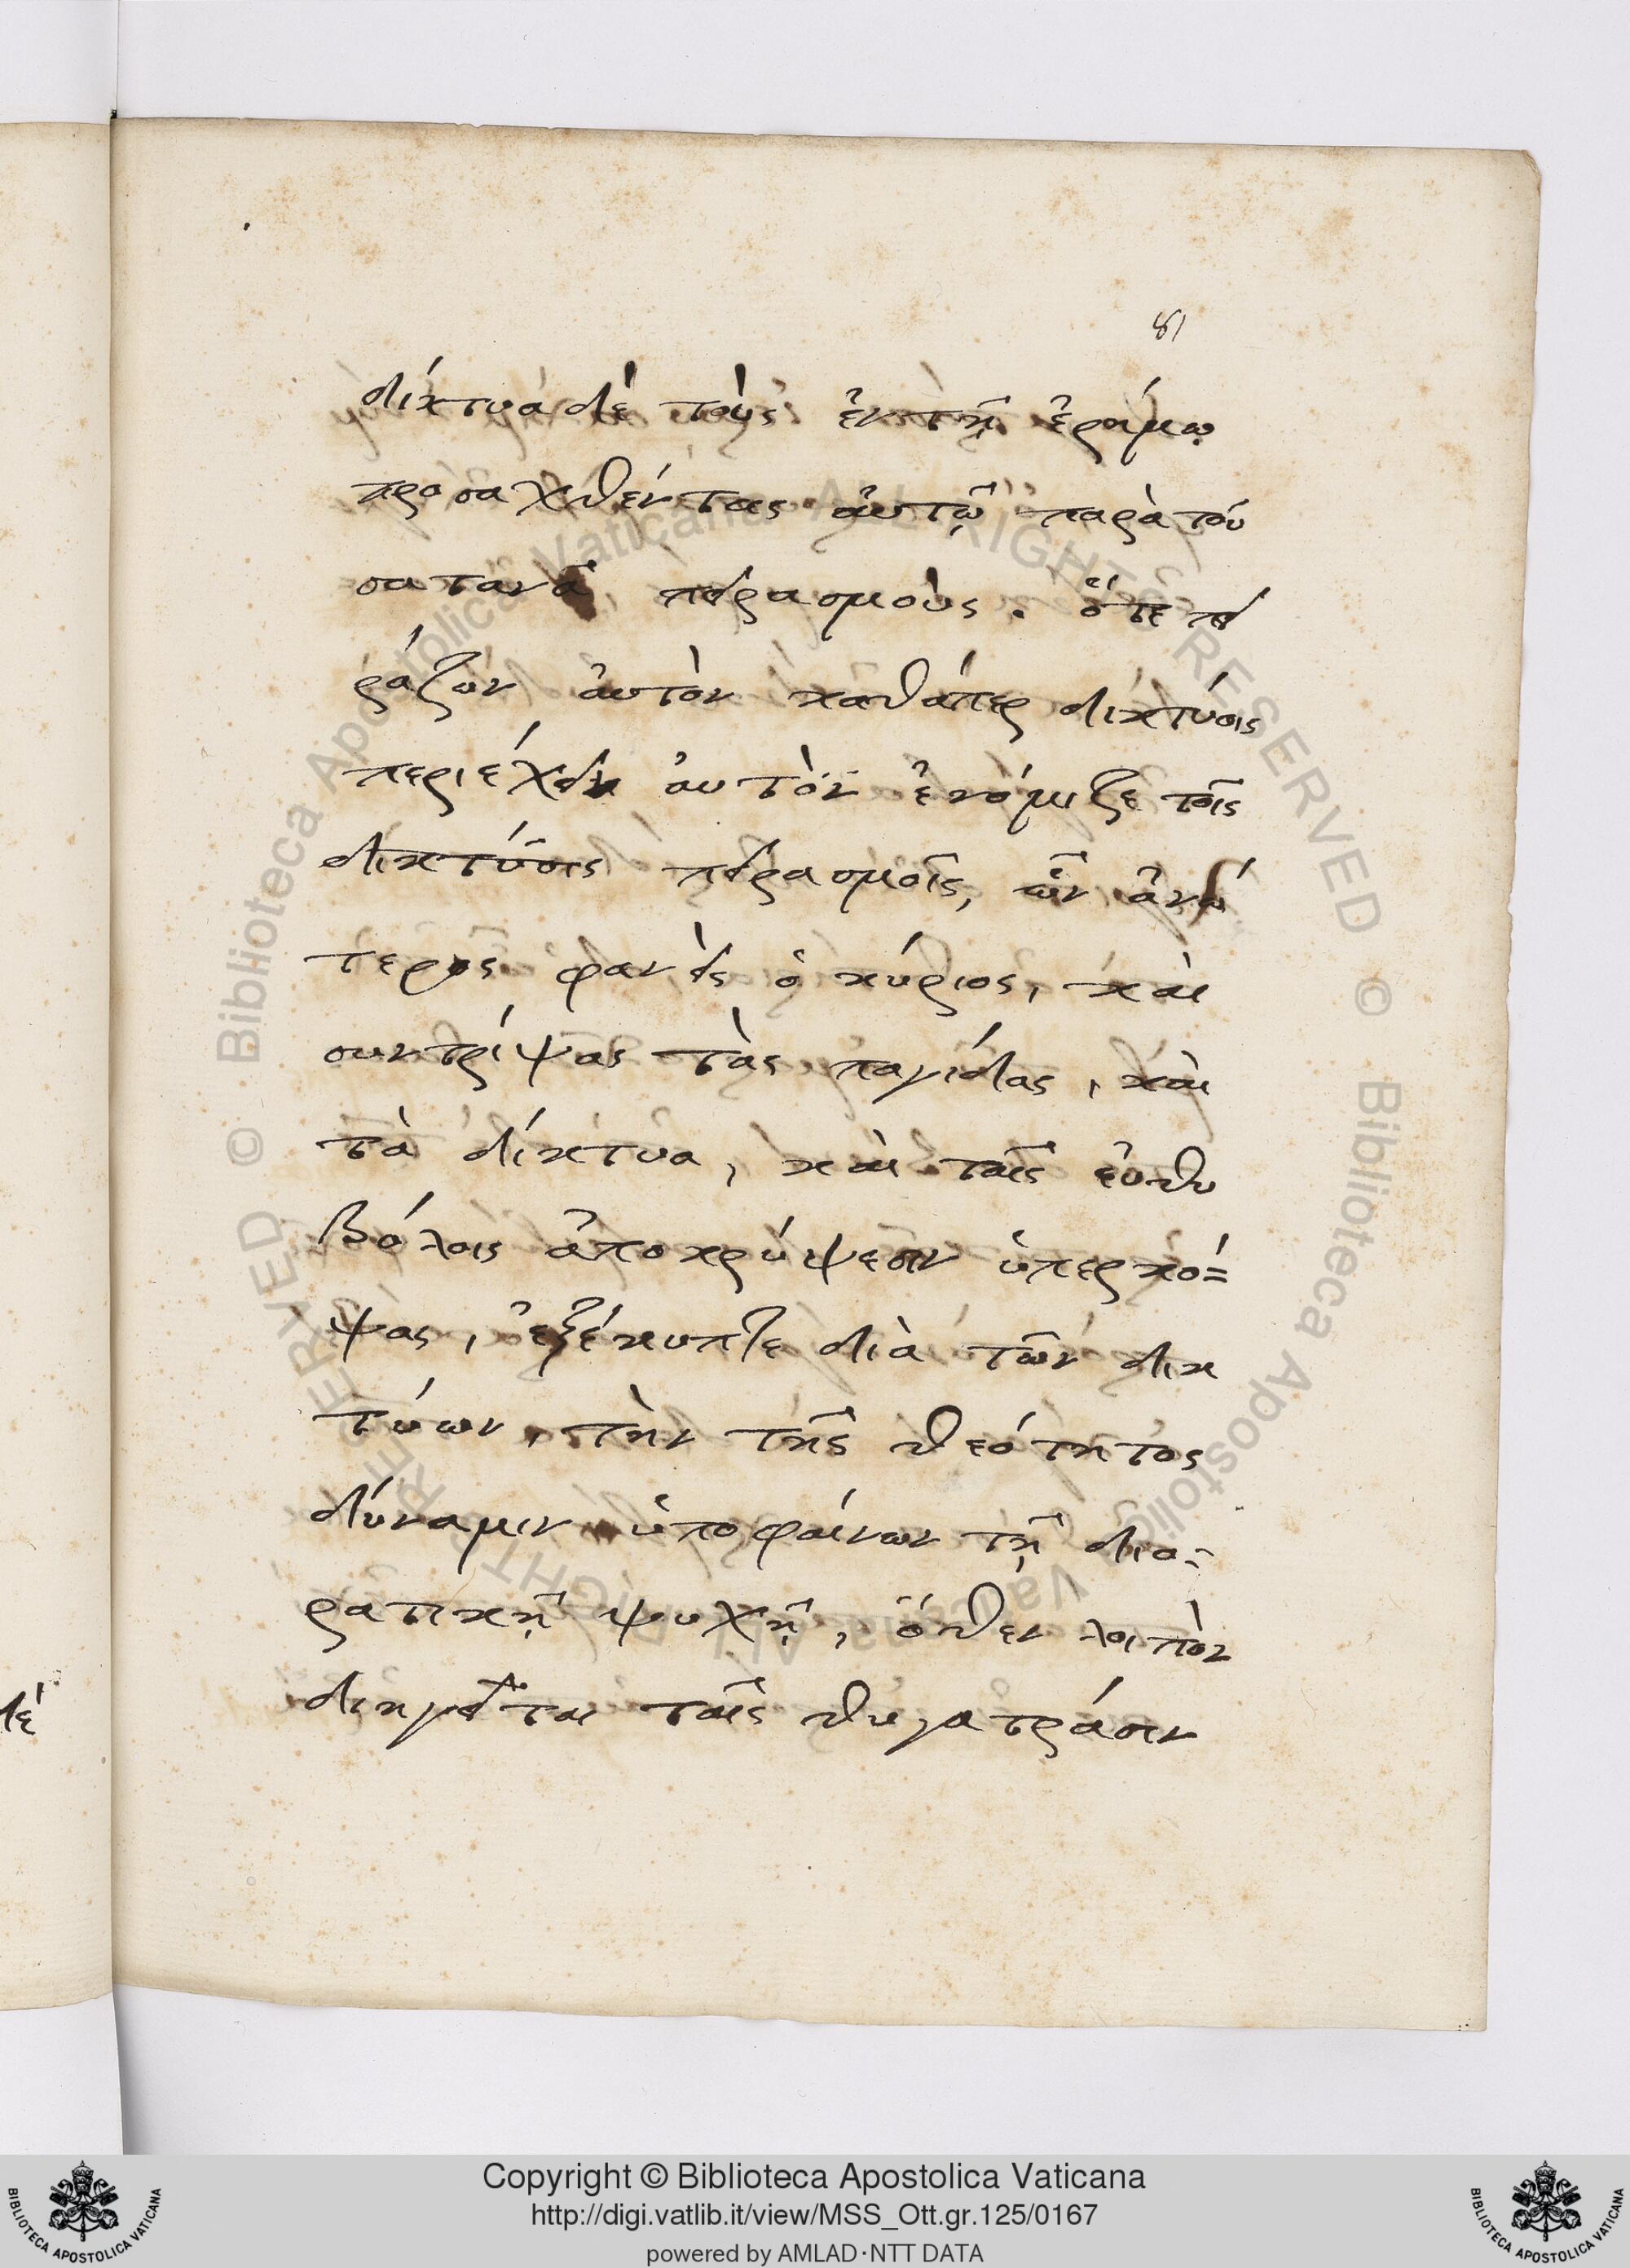 81
δίκτυα δὲ τοὺς ἐν τῇ ἐρήμῳ
προσαχθέντας αὐτῷ παρὰ τοῦ
σατανᾶ πειρασμούς. ὅτε πει
ράζων αὐτὸν καθάπερ δικτύοις
περιέχειν αὐτὸν ἐνόμιζε τοῖς
δικτύοις πειρασμοῖς, ὧν ἀνώ
τερος φανεὶς ὁ κύριος, καὶ
συντρίψας τὰς παγίδας, καὶ
τὰ δίκτυα, καὶ ταῖς εὐθυ
βόλοις ἀποκρύψεσιν ὑπερκό=
ψας, ἐξέκυπτε διὰ τῶν δικ
τύων, τὴν τῆς θεότητος
δύναμιν ὑποφαίνων τῇ διο=
ρατικῇ ψυχῇ, ὅθεν λοιπὸν
διηγεῖται ταῖς θυγατράσιν
δὲ
© Biblioteca Apostolica Vaticana ALL RIGHTS RESERVED © Biblioteca Apostolica Vaticana ALL RIGHTS RESERVED
Copyright © Biblioteca Apostolica Vaticana
http://digi.vatlib.it/view/MSS_Ott.gr.125/0167
powered by AMLAD·NTT DATA
BIBLIOTECA APOSTOLICA VATICANA
BIBLIOTECA APOSTOLICA VATICANA